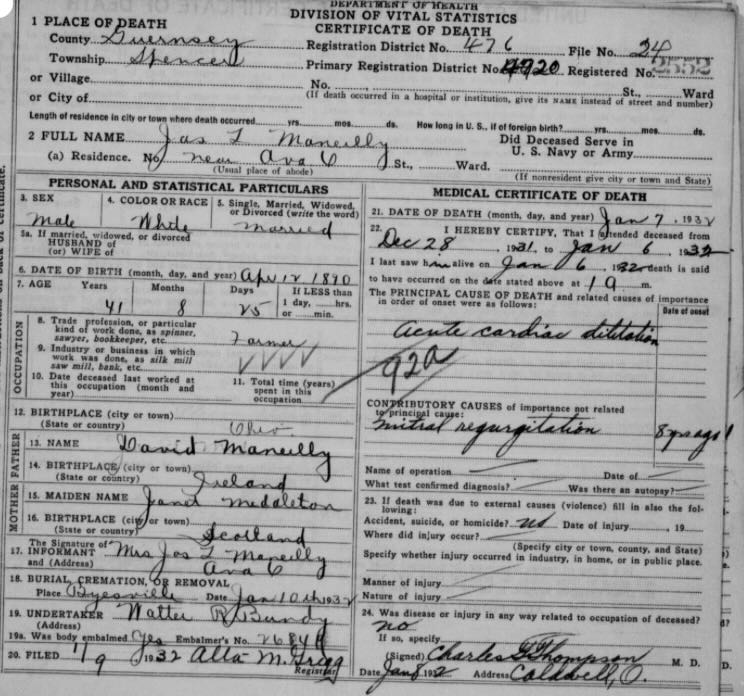 DEPARTMENT OF HEALTH
DIVISION OF VITAL STATISTICS
CERTIFICATE OF DEATH
1 PLACE OF DEATH
County Guernsey Registration District No. 476 File No. 24
Township Spencer Primary Registration District No. 4920 Registered No. 2552
or Village No. St., Ward
or City of (If death occurred in a hospital or institution, give its NAME instead of street and number)
Length of residence in city or town where death occurred yrs. mos. ds. How long in U. S., if of foreign birth? yrs. mos. ds.
2 FULL NAME Jas L Maneilly Did Deceased Serve in U. S. Navy or Army
(a) Residence. No. near Ava O St., Ward.
(Usual place of abode) (If nonresident give city or town and State)
PERSONAL AND STATISTICAL PARTICULARS
3. SEX Male
4. COLOR OR RACE White
5. Single, Married, Widowed, or Divorced (write the word) Married
5a. If married, widowed, or divorced
HUSBAND of
(or) WIFE of
6. DATE OF BIRTH (month, day, and year) Apr 12 1890
7. AGE Years 41 Months 8 Days 25 If LESS than 1 day, hrs. or min.
OCCUPATION
8. Trade, profession, or particular kind of work done, as spinner, sawyer, bookkeeper, etc. Farmer
9. Industry or business in which work was done, as silk mill saw mill, bank, etc.
10. Date deceased last worked at this occupation (month and year)
11. Total time (years) spent in this occupation
12. BIRTHPLACE (city or town)
(State or country) Ohio
FATHER
13. NAME David Maneilly
14. BIRTHPLACE (city or town)
(State or country) Ireland
MOTHER
15. MAIDEN NAME Janet Medaleton
16. BIRTHPLACE (city or town)
(State or country) Scotland
The Signature of
17. INFORMANT Mrs Jas L Maneilly
and (Address) Ava O
18. BURIAL, CREMATION, OR REMOVAL
Place Byesville Date Jan 10th 1932
19. UNDERTAKER Walter R Bundy
(Address)
19a. Was body embalmed Yes Embalmer's No.
20. FILED 1/9 1932 Alta M. Gregg
Registrar
MEDICAL CERTIFICATE OF DEATH
21. DATE OF DEATH (month, day, and year) Jan 7, 1932
22. I HEREBY CERTIFY, That I attended deceased from
Dec 28, 1931, to Jan 6, 1932
I last saw him alive on Jan 6, 1932 death is said
to have occurred on the date stated above at 1 9 m.
The PRINCIPAL CAUSE OF DEATH and related causes of importance
in order of onset were as follows: Date of onset
Acute cardiac dilitation
92a
CONTRIBUTORY CAUSES of importance not related
to principal cause:
mitral regurgitation 8 yrs ago
Name of operation Date of
What test confirmed diagnosis? Was there an autopsy?
23. If death was due to external causes (violence) fill in also the following:
Accident, suicide, or homicide? no Date of injury , 19
Where did injury occur?
(Specify city or town, county, and State)
Specify whether injury occurred in industry, in home, or in public place.
Manner of injury
Nature of injury
24. Was disease or injury in any way related to occupation of deceased?
no
If so, specify
(Signed) Charles Thompson M. D.
Date Jan 8 1932 Address Caldwell, O.